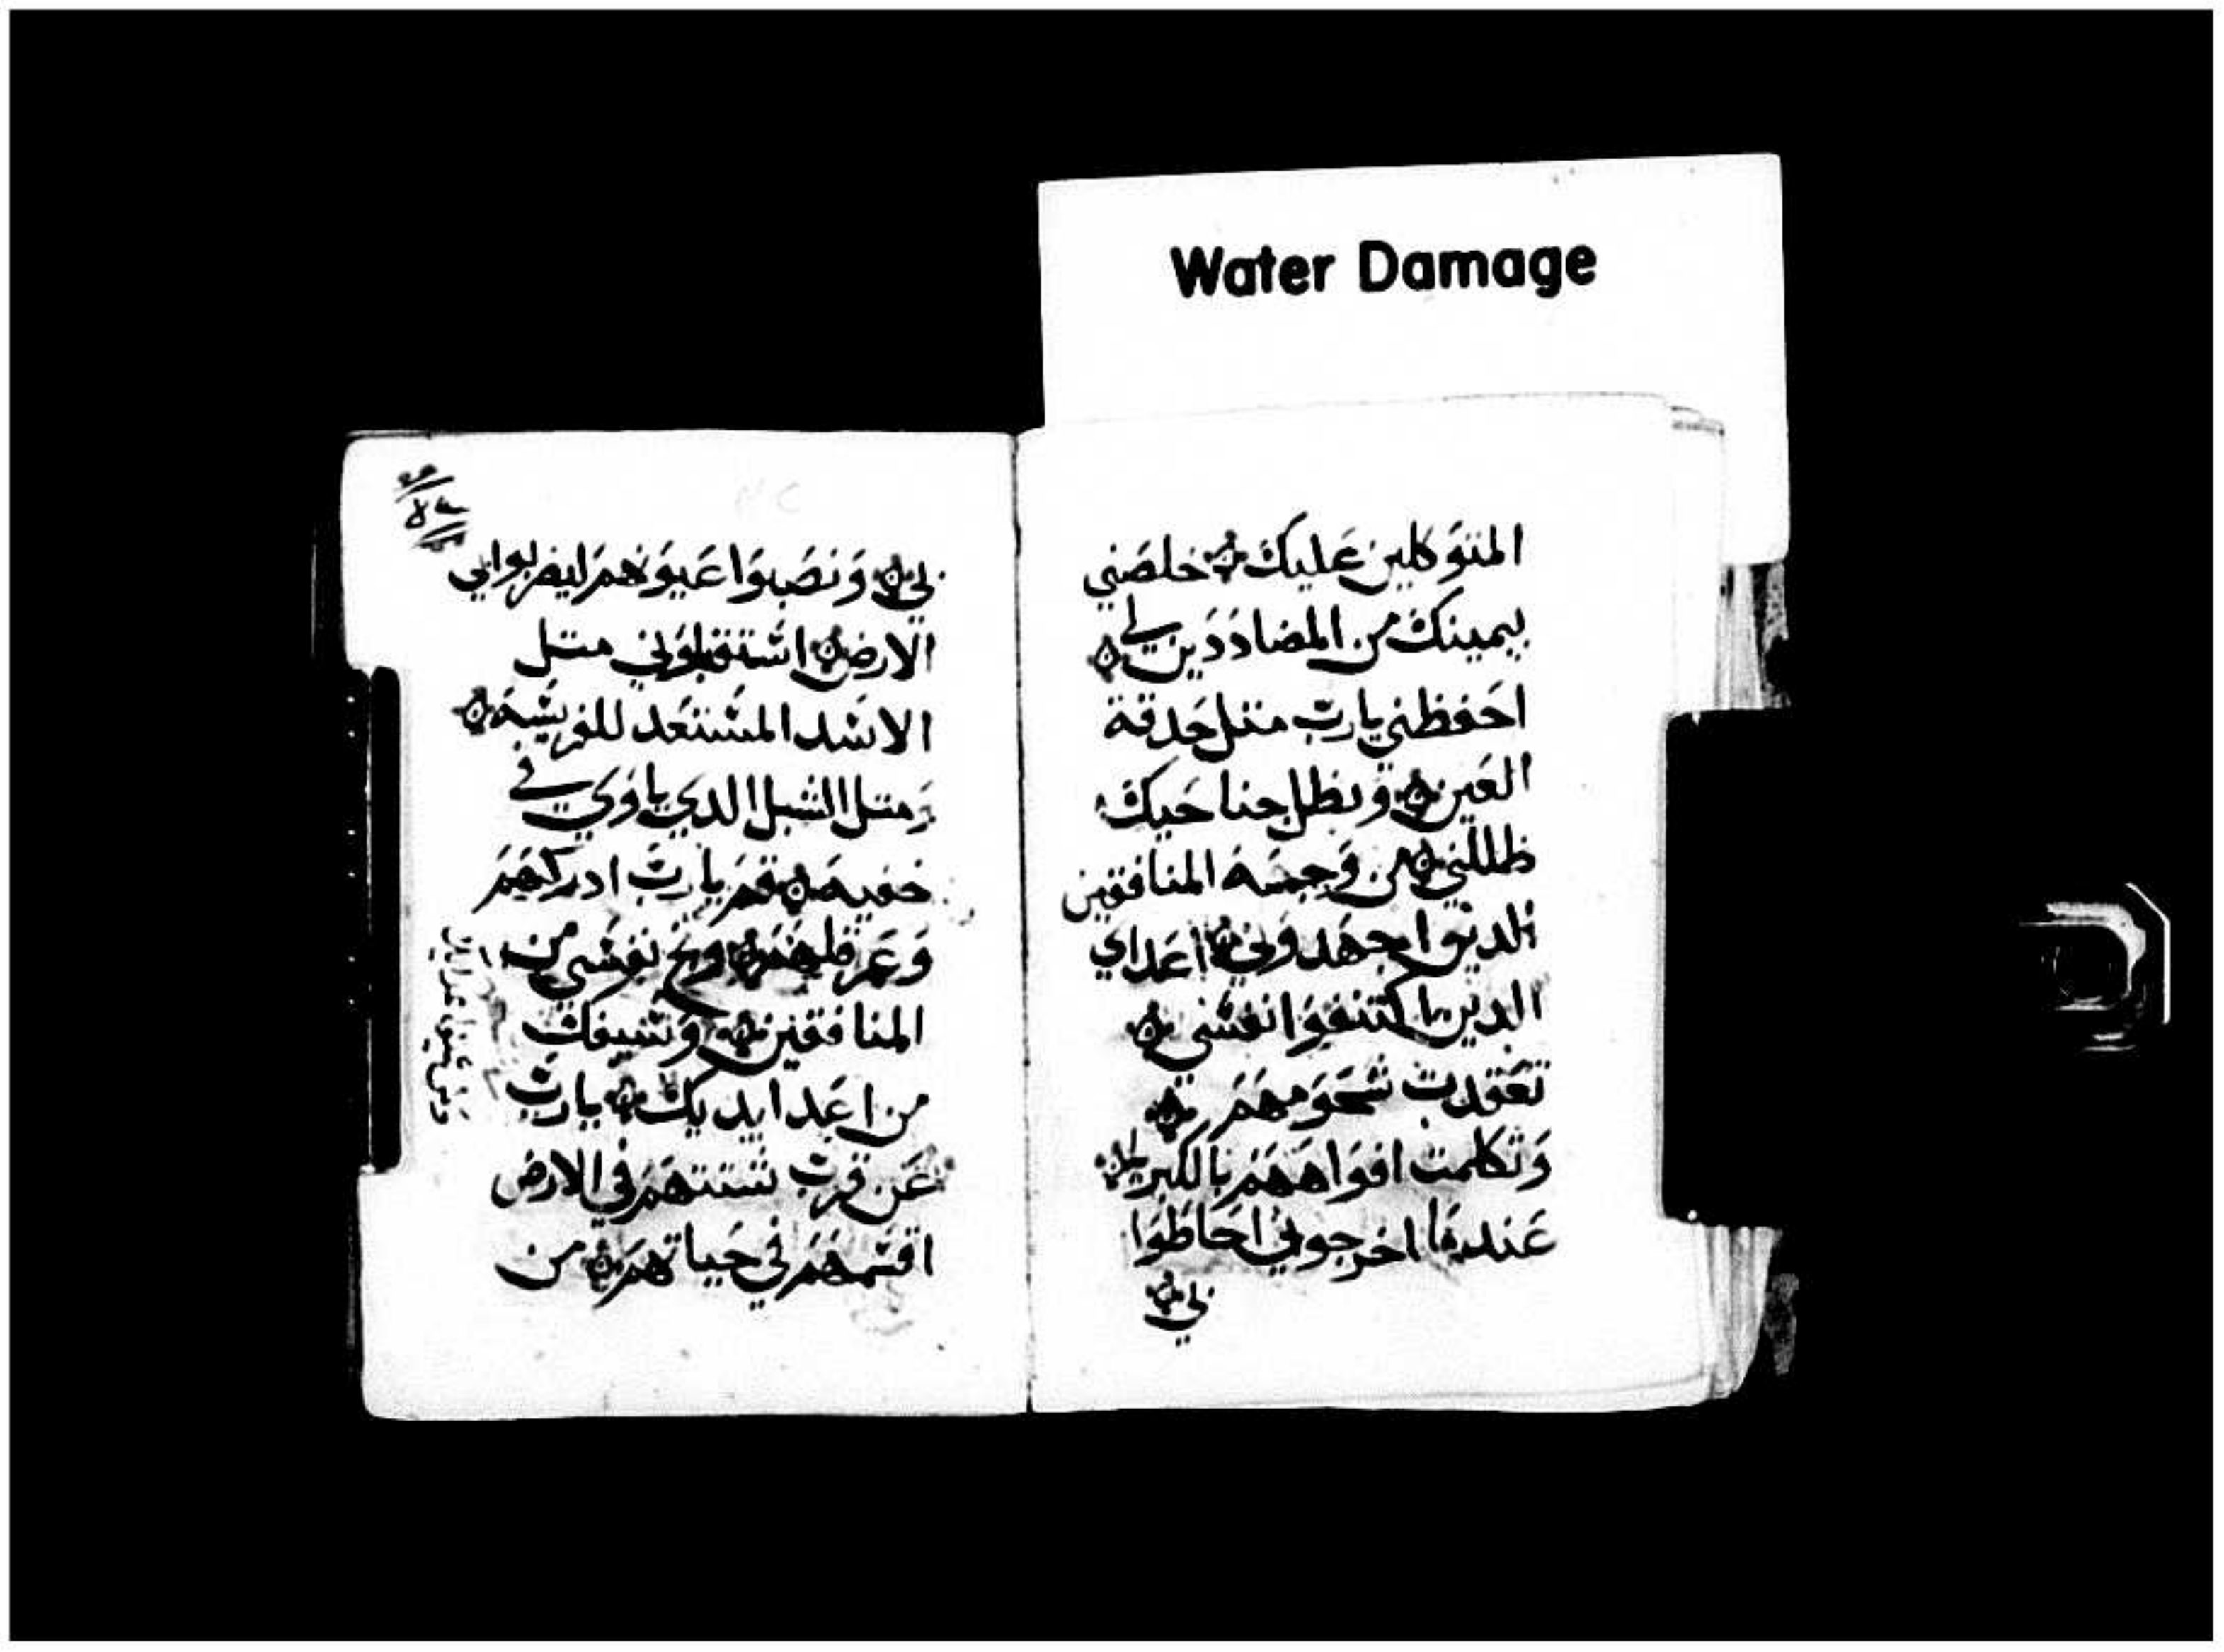 Water Damage
المتوكلين عليك خلصني
بيمينك من المضاددين لي
احفظني يارب متل حدقة
العين وبظل جناحيك
ظللني من وجه المنافقين
الدين اجهدوني اعداي
الدين اكتنفوا نفسي
تعقدت شحومهم
وتكلمت افواههم بالكبريا
عندما اخرجوني احاطوا
بي
بي ونصبوا عيونهم ليضربوا بي
الارض استقبلوني متل
الاسد المستعد للفريسه
ومتل الشبل الدي ياوي في
خفيه قم يارب ادركهم
وعرقلهم ونج نفسي من
المنافقين وسيفك
من اعدا يديك يارب
عن قرب شتتهم في الارض
اقسمهم في حياتهم من